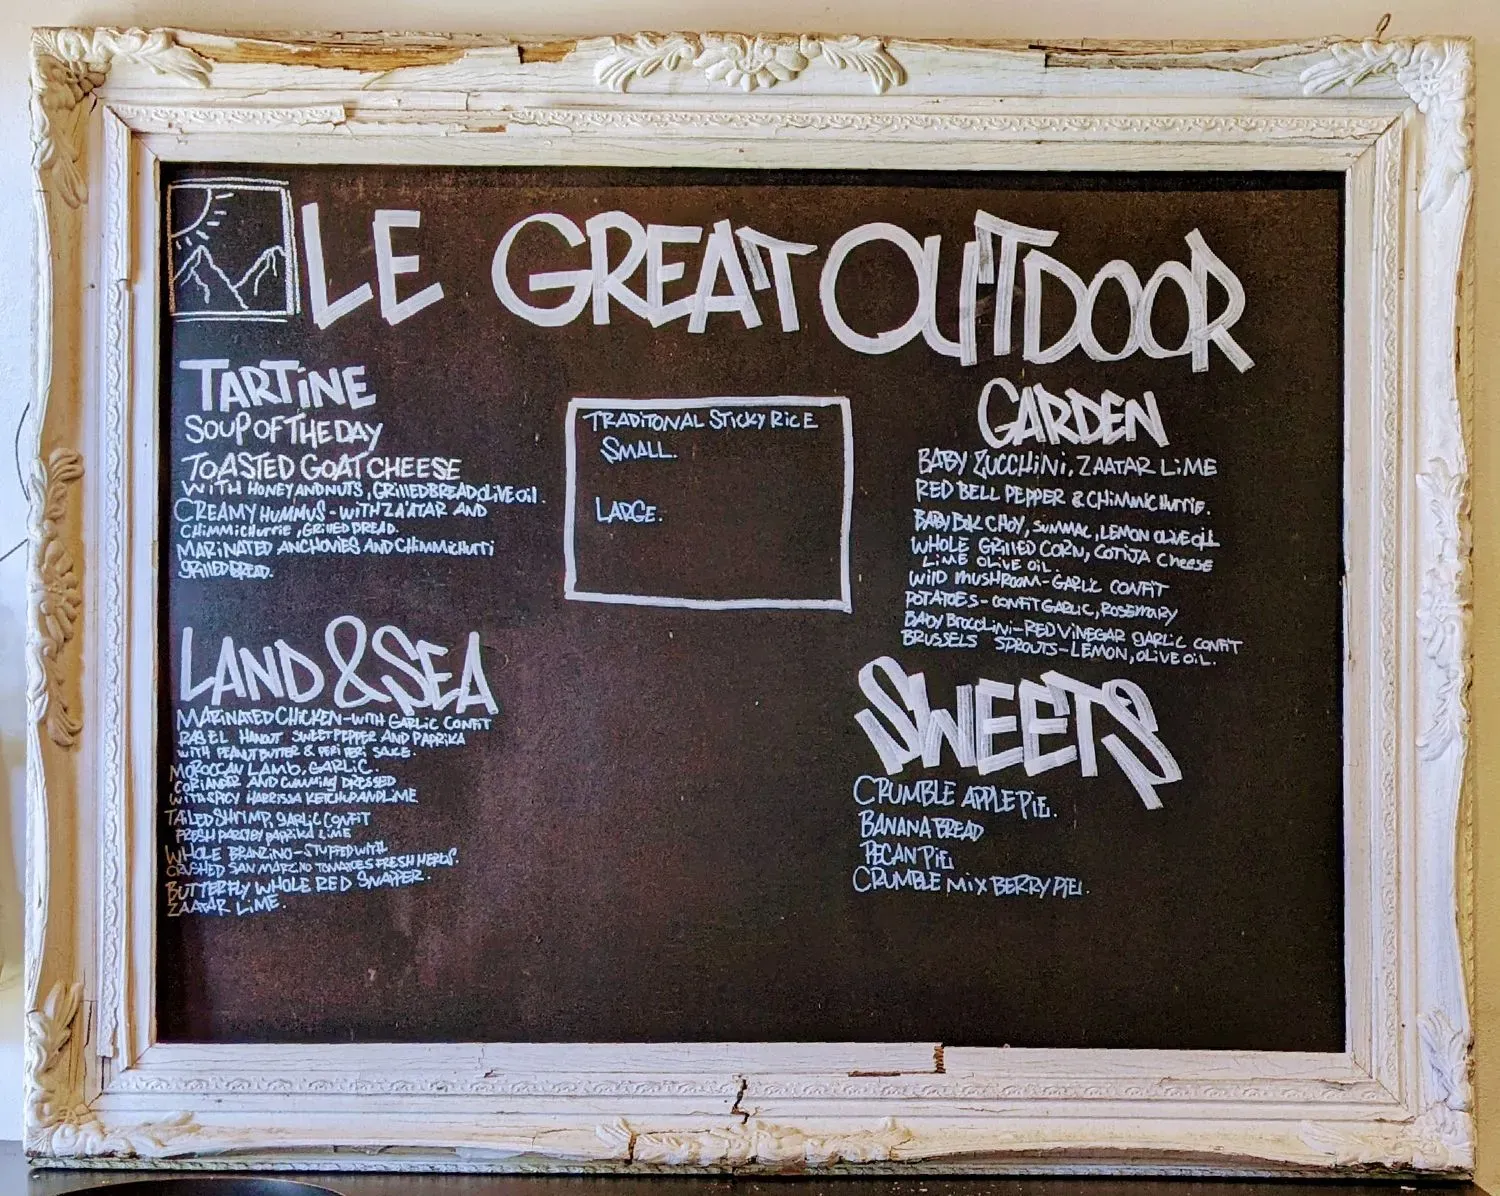 LE GREAT OUTDOOR
TARTINE
SOUP OF THE DAY
TOASTED GOAT CHEESE
WITH HONEY AND NUTS, GRILLED BREAD, OLIVE OIL.
CREAMY HUMMUS - WITH ZA'ATAR AND
CHIMMICHURRIE, GRILLED BREAD.
MARINATED ANCHOVIES AND CHIMMICHURTI
GRILLED BREAD.
LAND & SEA
MARINATED CHICKEN - WITH GARLIC CONFIT
RAS EL HANOUT SWEET PEPPER AND PAPRIKA
WITH PEANUT BUTTER & PERI PERI SAUCE.
MOROCCAN LAMB, GARLIC.
CORIANDER AND CUMMING DRESSED
WITH SPICY HARRISSA KETCHUP AND LIME
TAILED SHRIMP, GARLIC CONFIT
FRESH PARSLEY PAPRIKA LIME
WHOLE BRANZINO - STUFFED WITH
CRUSHED SAN MARZNO TOMATOES FRESH HERBS.
BUTTERFLY WHOLE RED SNAPPER.
ZAATAR LIME.
TRADITONAL STICKY RICE
SMALL.
LARGE.
GARDEN
BABY ZUCCHINI, ZAATAR LIME
RED BELL PEPPER & CHIMMICHURRIE.
BABY BOK CHOY, SUMMAC, LEMON OLIVE OIL
WHOLE GRILLED CORN, COTIJA CHEESE
LIME OLIVE OIL.
WILD MUSHROOM - GARLIC CONFIT
POTATOES - CONFIT GARLIC, ROSEMARY
BABY BROCCLINI - RED VINEGAR GARLIC CONFIT
BRUSSELS SPROUTS - LEMON, OLIVE OIL.
SWEETS
CRUMBLE APPLE PIE.
BANANA BREAD
PECAN PIE
CRUMBLE MIX BERRY PIE.